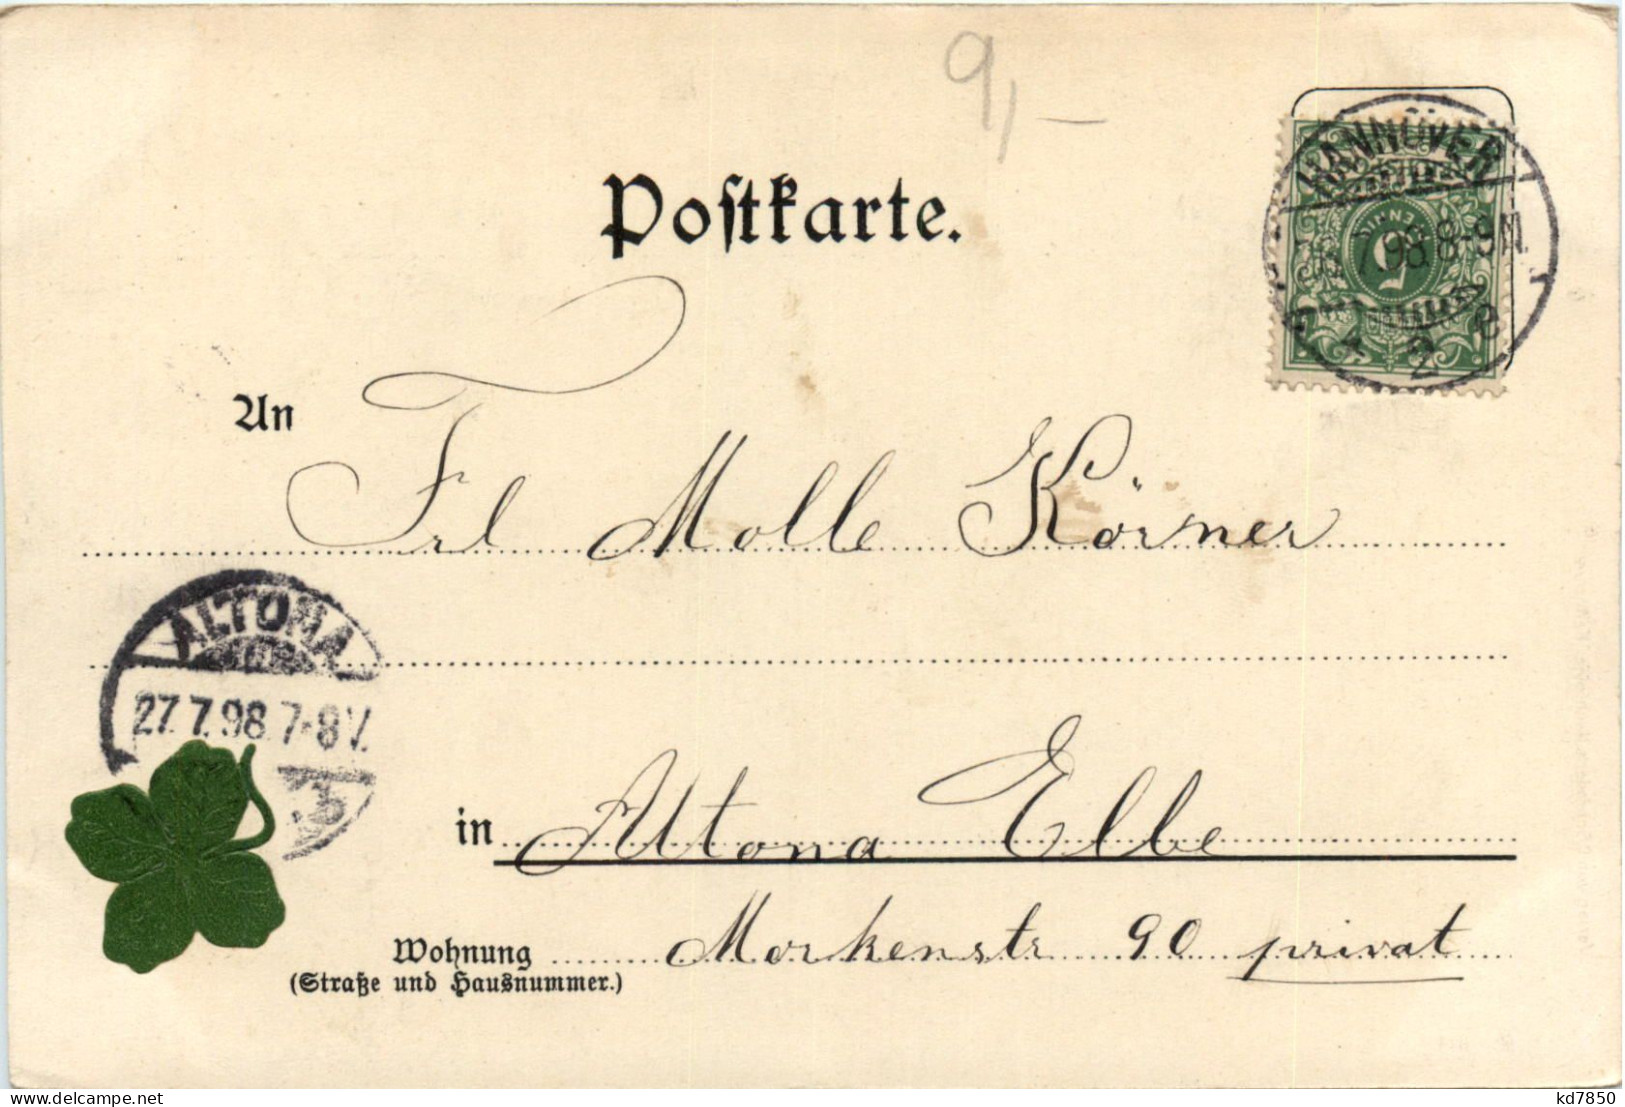 9,–
Postkarte.
HANNOVER
7.98.8-9N.
2 e
5
An
Frl Molle Körner
ALTONA
27.7.98.7-8V.
in Altona Elbe
Wohnung Markenstr 90 privat
(Straße und Hausnummer.)
kd7850